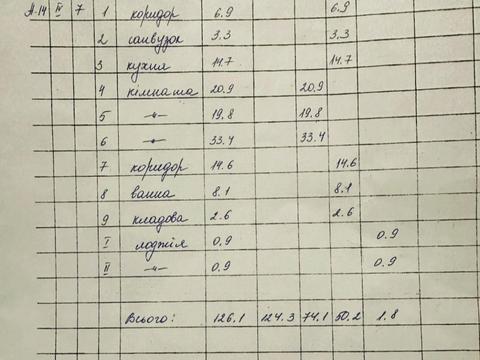 А-14 II 7 1 коридор 6.9 6.9
2 санвузол 3.3 3.3
3 кухна 14.7 14.7
4 кімната 20.9 20.9
5 -〃- 19.8 19.8
6 -〃- 33.4 33.4
7 коридор 14.6 14.6
8 ванна 8.1 8.1
9 кладова 2.6 2.6
I лоджія 0.9 0.9
II -〃- 0.9 0.9
Всього: 126.1 124.3 74.1 50.2 1.8